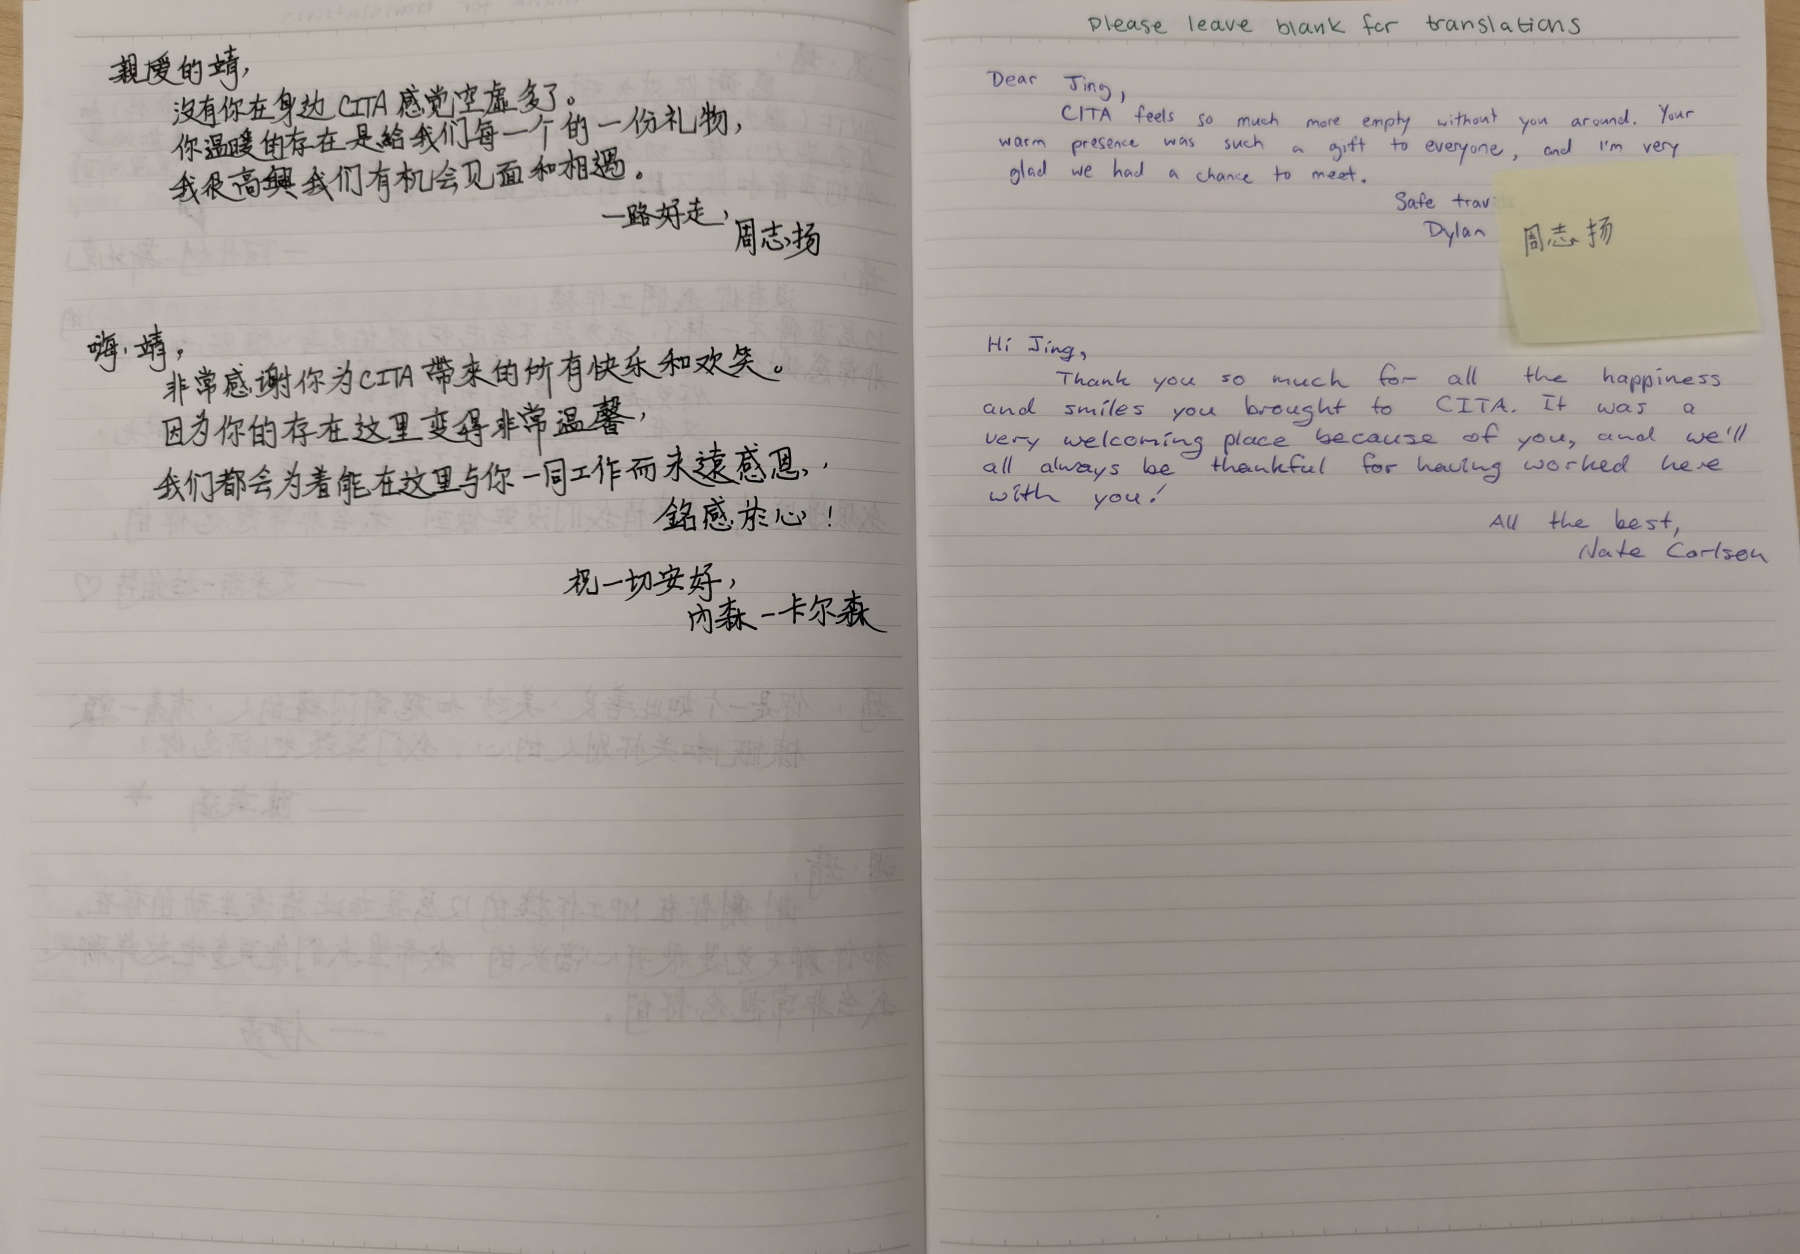 親愛的靖,
沒有你在身边CITA感觉空虚多了。
你温暖的存在是給我们每一个的一份礼物,
我很高興我们有机会见面和相遇。
一路好走,
周志扬
嗨,靖,
非常感谢你为CITA帶来的所有快乐和欢笑。
因为你的存在这里变得非常温馨,
我们都会为着能在这里与你一同工作而永遠感恩,
銘感於心!
祝一切安好,
内森-卡尔森
Please leave blank for translations
Dear Jing,
CITA feels so much more empty without you around. Your
warm presence was such a gift to everyone, and I'm very
glad we had a chance to meet.
Safe
Dylan
周志扬
Hi Jing,
Thank you so much for all the happiness
and smiles you brought to CITA. It was a
very welcoming place because of you, and we'll
all always be thankful for having worked here
with you!
All the best,
Nate Carlson